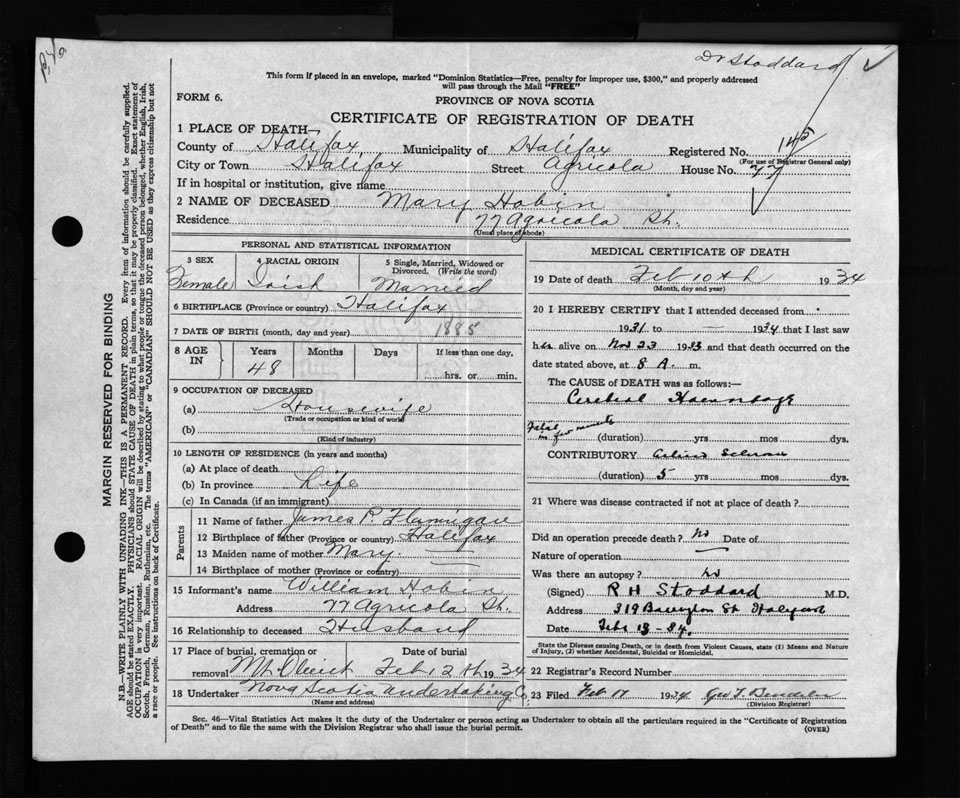 Dr Stoddard
This form if placed in an envelope, marked "Dominion Statistics—Free, penalty for improper use, $300," and properly addressed
will pass through the Mail "FREE"
FORM 6.
PROVINCE OF NOVA SCOTIA
CERTIFICATE OF REGISTRATION OF DEATH
1 PLACE OF DEATH—
County of Halifax Municipality of Halifax Registered No. 145
(For use of Registrar General only)
City or Town Halifax Street Agricola House No. 77
If in hospital or institution, give name
2 NAME OF DECEASED Mary Hobin
Residence 77 Agricola St.
(Usual place of abode)
PERSONAL AND STATISTICAL INFORMATION
3 SEX 4 RACIAL ORIGIN 5 Single, Married, Widowed or Divorced. (Write the word)
Female Irish Married
6 BIRTHPLACE (Province or country) Halifax
7 DATE OF BIRTH (month, day and year) 1885
8 AGE IN Years Months Days If less than one day,
48 hrs. or min.
9 OCCUPATION OF DECEASED
(a) Housewife
(Trade or occupation or kind of work)
(b)
(Kind of industry)
10 LENGTH OF RESIDENCE (in years and months)
(a) At place of death
(b) In province Life
(c) In Canada (if an immigrant)
Parents
11 Name of father James P. Flannigan
12 Birthplace of father (Province or country) Halifax
13 Maiden name of mother Mary —
14 Birthplace of mother (Province or country) —
15 Informant's name William Hobin
Address 77 Agricola St.
16 Relationship to deceased Husband
17 Place of burial, cremation or removal Date of burial
Mt. Olivet Feb 12th 1934
18 Undertaker Nova Scotia Undertaking Co.
(Name and address)
MEDICAL CERTIFICATE OF DEATH
19 Date of death Feb 10th 1934
(Month, day and year)
20 I HEREBY CERTIFY that I attended deceased from
1931 to — 1934 that I last saw
her alive on Nov 23 1933 and that death occurred on the
date stated above, at 8 A. m.
The CAUSE of DEATH was as follows:—
Cerebral Haemorrhage
Fatal in few minutes (duration) yrs mos dys.
CONTRIBUTORY
(duration) 5 yrs mos dys.
21 Where was disease contracted if not at place of death?
Did an operation precede death? No Date of
Nature of operation
Was there an autopsy? No
(Signed) R H Stoddard M.D.
Address 319 Barrington St Halifax
Date Feb 13 - 34.
State the Disease causing Death, or in death from Violent Causes, state (1) Means and Nature
of Injury, (2) whether Accidental, Suicidal or Homicidal.
22 Registrar's Record Number
23 Filed Feb 17 1934 Geo T.
(Division Registrar)
Sec. 46—Vital Statistics Act makes it the duty of the Undertaker or person acting as Undertaker to obtain all the particulars required in the "Certificate of Registration
of Death" and to file the same with the Division Registrar who shall issue the burial permit.
(OVER)
MARGIN RESERVED FOR BINDING
N.B.—WRITE PLAINLY WITH UNFADING INK—THIS IS A PERMANENT RECORD. Every item of information should be carefully supplied.
AGE should be stated EXACTLY. PHYSICIANS should STATE CAUSE OF DEATH in plain terms, so that it may be properly classified. Exact statement of
OCCUPATION is very important. RACIAL ORIGIN will be described by stating to what people or tongue the deceased person belonged, whether English, Irish,
Scotch, French, German, Russian, Ruthenian, etc. The terms "AMERICAN" or "CANADIAN" SHOULD NOT BE USED as they express citizenship but not
a race or people. See instructions on back of Certificate.